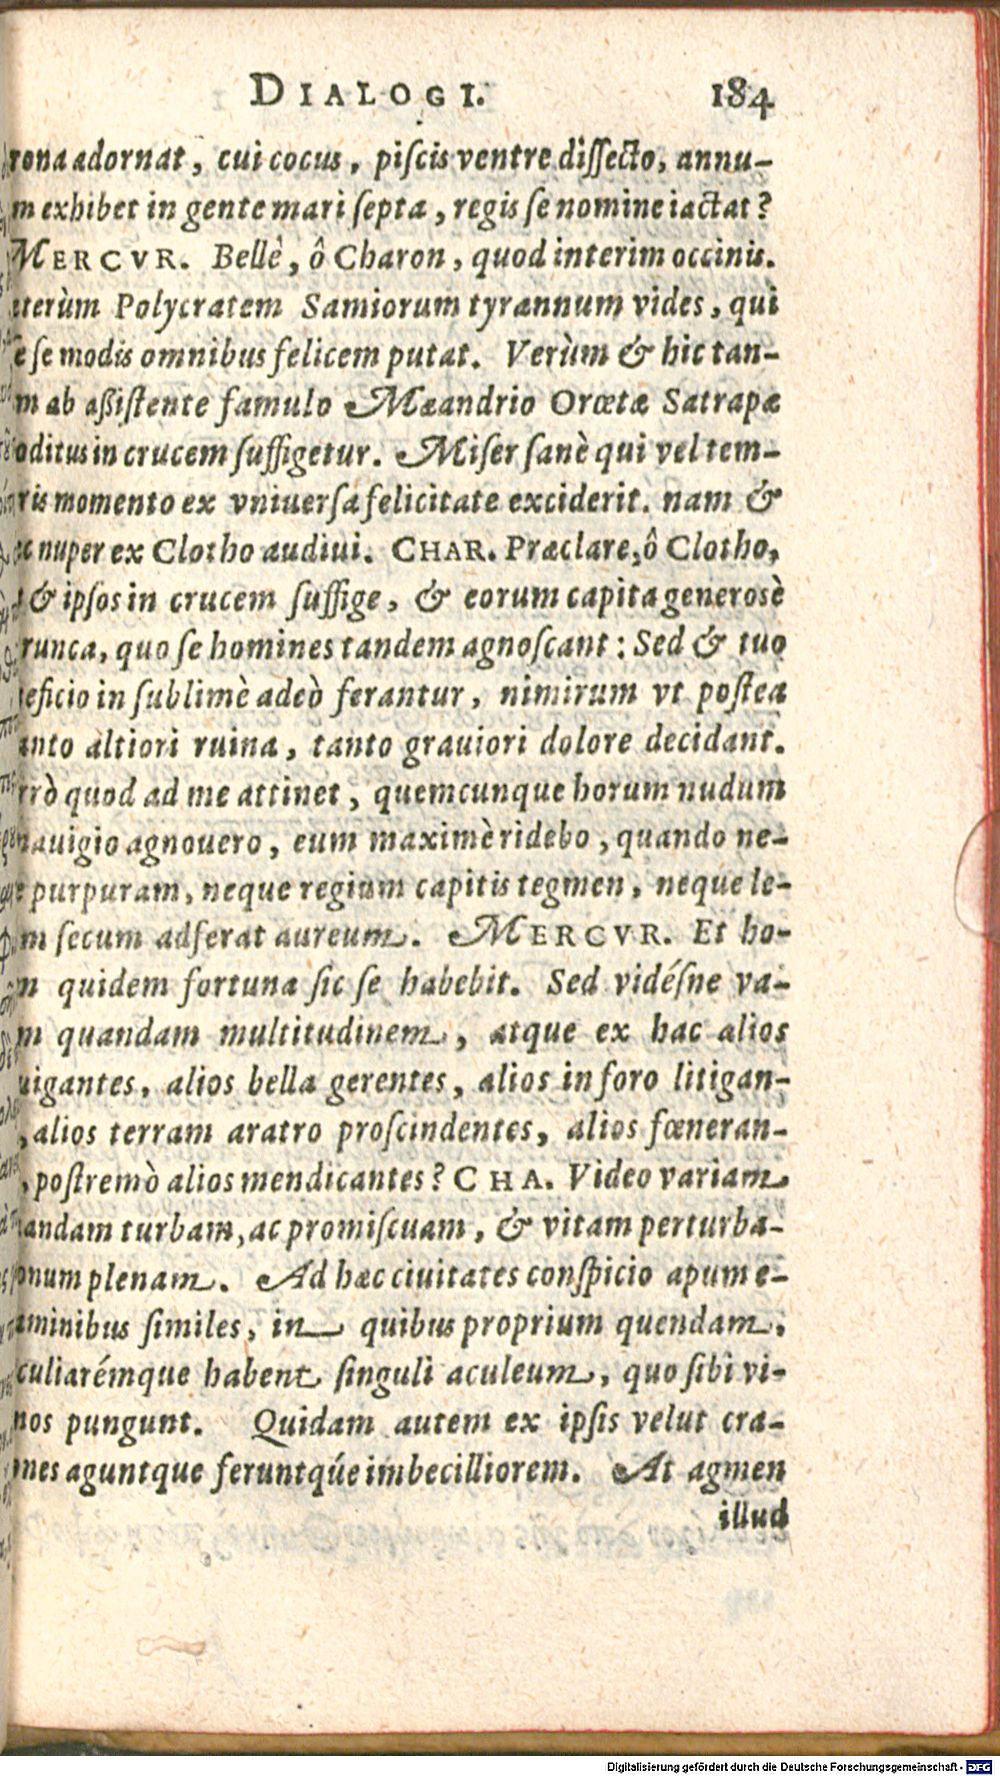 DIALOGI. 184
rona adornat, cui cocus, piſcis ventre diſſecto, annu-
m exhibet in gente mari ſepta, regis ſe nomine iactat?
MERCVR. Bellè, ô Charon, quod interim occinis.
eterùm Polycratem Samiorum tyrannum vides, qui
e ſe modis omnibus felicem putat. Verùm & hic tan-
m ab aßiſtente famulo Mæandrio Orœtæ Satrapæ
oditus in crucem ſuffigetur. Miſer ſanè qui vel tem-
ris momento ex vniuerſa felicitate exciderit. nam &
c nuper ex Clotho audiui. CHAR. Præclare, ô Clotho,
& ipſos in crucem ſuffige, & eorum capita generosè
runca, quo ſe homines tandem agnoſcant: Sed & tuo
eficio in ſublimè adeò ferantur, nimirum vt poſtea
anto altiori ruina, tanto grauiori dolore decidant.
rrò quod ad me attinet, quemcunque horum nudum
nauigio agnouero, eum maximè ridebo, quando ne-
e purpuram, neque regium capitis tegmen, neque le-
m ſecum adferat aureum. MERCVR. Et ho-
n quidem fortuna ſic ſe habebit. Sed vidéſne va-
m quandam multitudinem, atque ex hac alios
uigantes, alios bella gerentes, alios in foro litigan-
, alios terram aratro proſcindentes, alios fœneran-
, poſtremò alios mendicantes? CHA. Video variam
andam turbam, ac promiſcuam, & vitam perturba-
onum plenam. Ad hæc ciuitates conſpicio apum e-
aminibus ſimiles, in quibus proprium quendam,
culiarémque habent ſinguli aculeum, quo ſibi vi-
nos pungunt. Quidam autem ex ipſis velut cra-
nes aguntque feruntqúe imbecilliorem. At agmen
illud
Digitalisierung gefördert durch die Deutsche Forschungsgemeinschaft - DFG